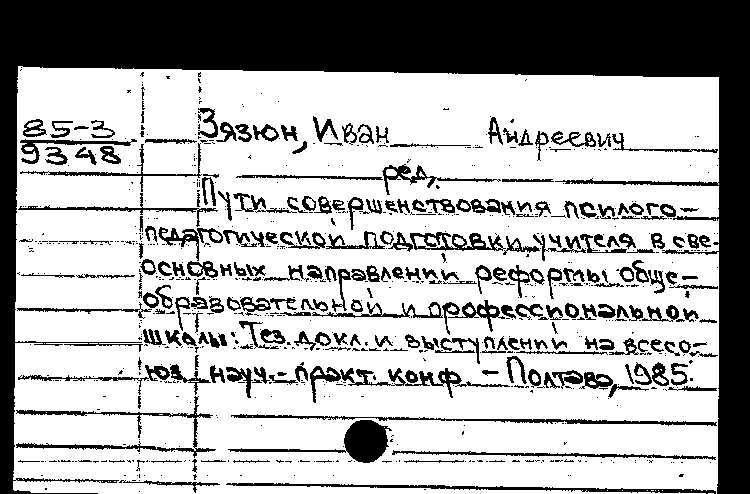 85-3
9348
Зязюн, Иван Андреевич
ред.
Пути совершенствования психолого-
педагогической подготовки учителя в све-
основных направлений реформы обще-
образовательной и профессиональной
школы: Тез. докл. и выступлений на всесо-
юз. науч.-практ. конф. – Полтава, 1985.